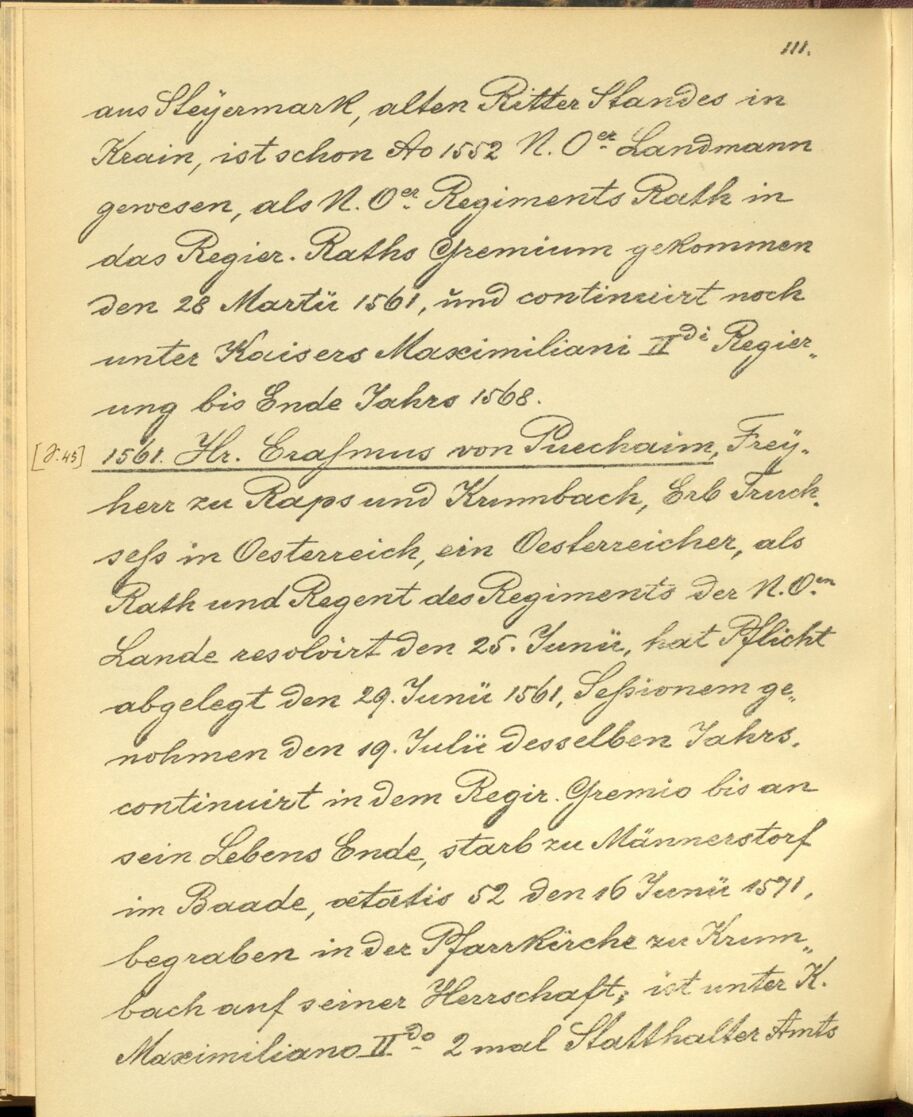 111.
aus Steÿermark, alten Ritter Standes in
Krain, ist schon Ao 1552 N. Oer. Landmann
gewesen, als N. Oer. Regiments Rath in
das Regier. Raths Gremium gekommen
den 28 Martii 1561, und continuirt noch
unter Kaisers Maximiliani IIdi Regier„
ung bis Ende Jahrs 1568.
[F. 45] 1561. Hr. Eraſmus von Puechaim, Freÿ„
herr zu Raps und Krumbach, Erb Truch„
seſs in Oesterreich, ein Oesterreicher, als
Rath und Regent des Regiments der N. Oen.
Lande resolvirt den 25. Junii, hat Pflicht
abgelegt den 29. Junii 1561, Seſsionem ge„
nohmen den 19. Julii desselben Jahrs,
continuirt in dem Regir. Gremio bis an
sein Lebens Ende, starb zu Männerstorf
im Baade, ætatis 52 den 16 Junii 1571,
begraben in der Pfarrkirche zu Krum„
bach auf seiner Herrschaft; ist unter K.
Maximiliano IIdo. 2 mal Statthalter Amts